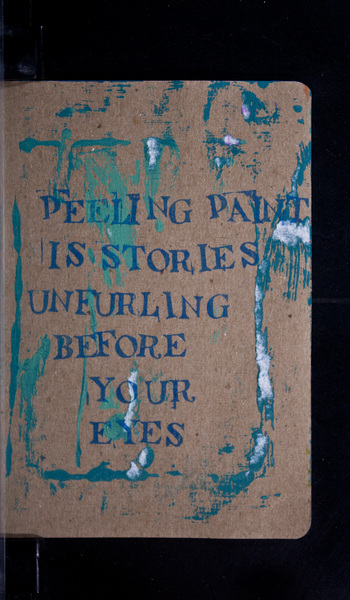 PEELING PAINT
IS STORIES
UNFURLING
BEFORE
YOUR
EYES